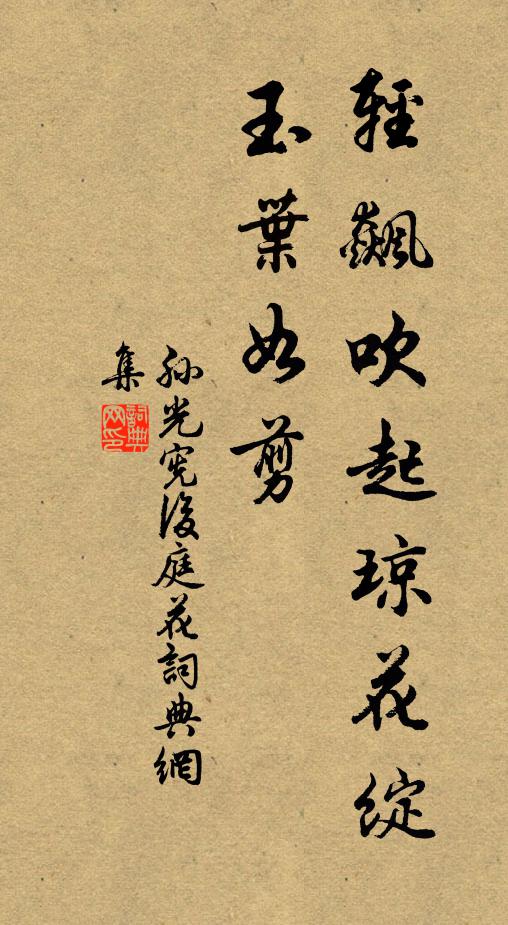 輕飆吹起琼花綻
玉葉如剪
孙光宪後庭花詞典網
集
詞典
网印